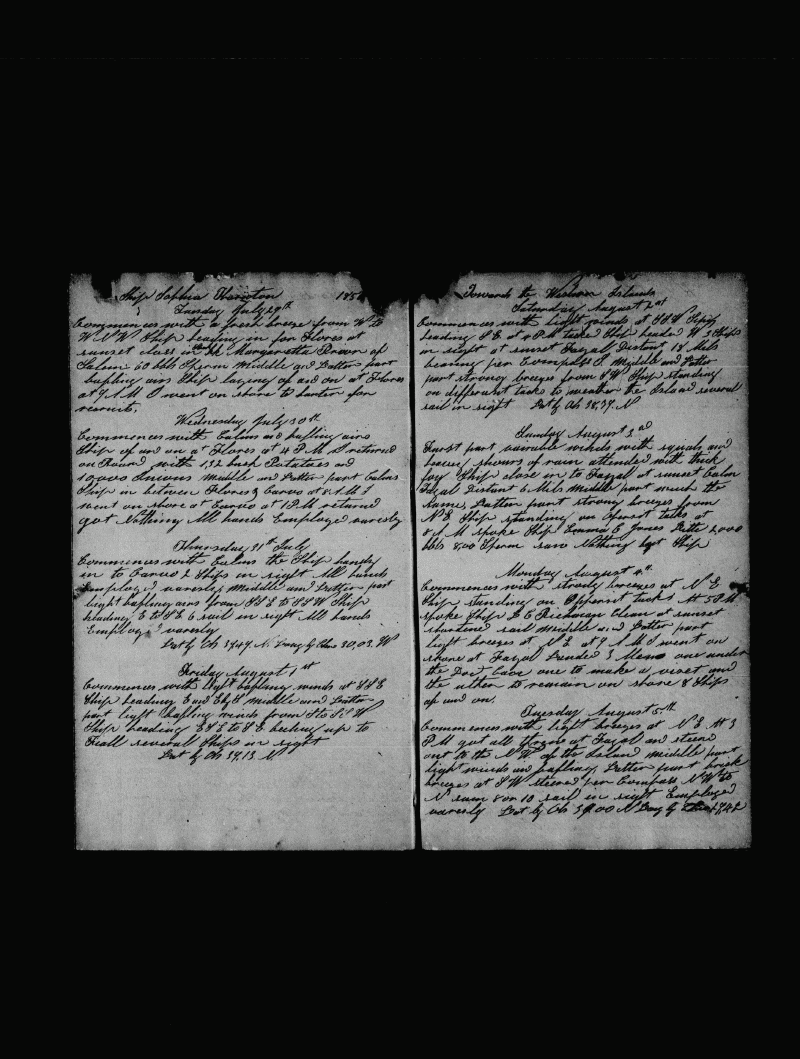 Ship Sophia Thornton 185
Tuesday July 29th
Commences with a fresh breeze from W to
W N W Ship heading in for Flores at
sunset close in the Margaretta Brown of
Salem 60 bbls Sperm Middle and Latter part
bafling airs Ship laying of and on at Flores
at 9 A M I went on shore to barter for
recruits.
Wednesday July 30th
Commences with Calms and bafling airs
Ship of and on at Flores at 4 P M I returned
on Board with 132 bush Potatoes and
Onions Middle and Latter part Calms
Ship in between Flores & Corvo at 8 A M I
went on shore at Corvo at 1 P M returned
got Nothing All hands Employed variesly
Thursday 31st July
Commences with Calms the Ship handy
in to Corvo 2 Ships in sight All hands
Employed variesly Middle and Latter part
light bafling airs from S S E to S S W Ship
heading E to S E 6 sail in sight All hands
Employ d variesly
Lat by Ob 39.47 N Long by Chro 30.03. W
Friday August 1st
Commences with light bafling winds at S S E
Ship heading E and E by S Middle and Latter
part light bafling winds from S to S W
Ship heading E S E to S E beating up to
Fiall several Ships in sight
Lat by Ob 39.13 N
Towards the Western Islands
Saturday August 2nd
Commences with light winds at S S W Ship
heading S E at 4 P M tacked Ship headed W 3 Ships
in sight at sunset Fayal Distant 18 Mils
bearing per Compass S Middle and Latter
part strong breezes from S W Ship standing
on different tacks to weather the Island several
sail in sight Lat by Ob 38.39. N
Sunday August 3rd
Furst part vairable winds with squals and
heavey shours of rain attended with thick
fog Ship close in to Fayal at sunset Calm
Fayal Distant 6 Mils Middle part much the
same Latter part strong breezes from
N E Ship standing on Opersit tacks at
8 A M spoke Ship Emma C Jones
bbls 800 Sperm saw Nothing kept Ship
Monday August 4th
Commences with strong breezes at N E
Ship standing on Oppersit tacks At 5 P M
spoke Ship Clean at sunset
shortened sail Middle and Latter part
light breezes at N E at 9 A M I went on
shore at Fayal Landed 3 Mens one under
the Doct Care one to make a viset and
the uther to remain on shore 8 Ships
of and on.
Tuesday August 5th
Commences with light breezes at N E At 3
P M got all at Fayal and steerd
out to the N W of the Island Middle part
light winds and bafling Latter part brisk
breezes at S W steered per Compass N W to
N saw 8 or 10 sail in sight Employed
variesly Lat by Ob 39.00 N Long by